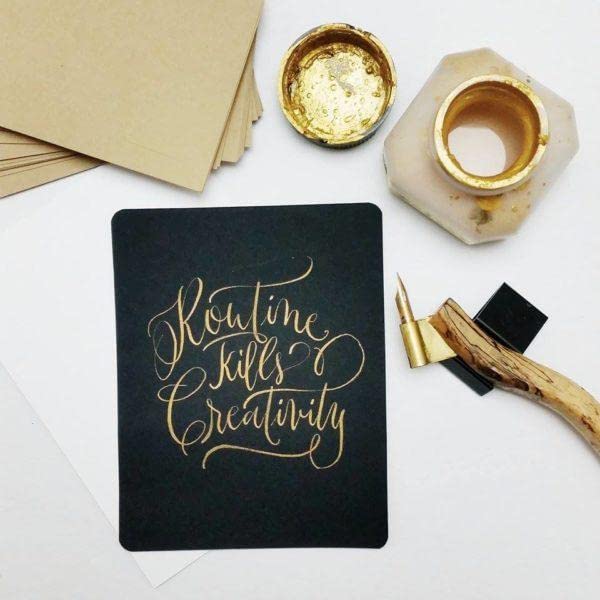 Routine
Kills
Creativity